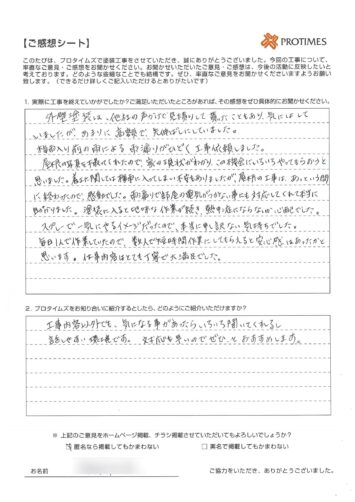 【ご感想シート】
PROTIMES
このたびは、プロタイムズで塗装工事をさせていただき、誠にありがとうございました。今回の工事について、
率直なご意見・ご感想をお聞かせください。お聞かせいただいたご意見・ご感想は、今後の活動に反映したいと
考えております。どのような些細なことでも結構です。ぜひ、率直なご意見をお聞かせくださいますようお願い
致します。（できるだけ詳しくご記入いただけるとありがたいです）
1. 実際に工事を終えていかがでしたか？ご満足いただいたところがあれば、その感想をぜひ具体的にお聞かせください。
外壁塗装は、他社の声かけで見積りして貰ったこともあり、気にはして
いましたが、あまりに高額で先伸ばしにしていました。
梅雨入り前の雨による雨漏りがひどく工事依頼しました。
屋根の写真を撮って来たので、家の現状がわかり、この機会にいろいろやってもらおうと
思いました。
屋根の工事は、あっという間
に終わったので、感動でした。雨漏りで部屋の電気がつかない事も対応してくれて本当に
助かりました。塗装に入ると地味な作業が続き、熱中症にならないか心配でした。
スプレーで一気にやるイメージだったので、本当に申し訳ない気持ちでした。
毎日1人で作業していたので、数人で短時間作業にしてもらえると安心感はあったかと
思います。仕事内容はとても丁寧で大満足でした。
2. プロタイムズをお知り合いに紹介するとしたら、どのようにご紹介いただけますか？
工事内容以外でも、気になる事があったらいろいろ聞いてくれるし
話しやすい環境です。対応も早いのでぜひ、とおすすめします。
※ 上記のご意見をホームページ掲載、チラシ掲載させていただいてもよろしいでしょうか？
匿名なら掲載してもかまわない □ 実名で掲載してもかまわない
お名前
ご協力をいただき、ありがとうございました。